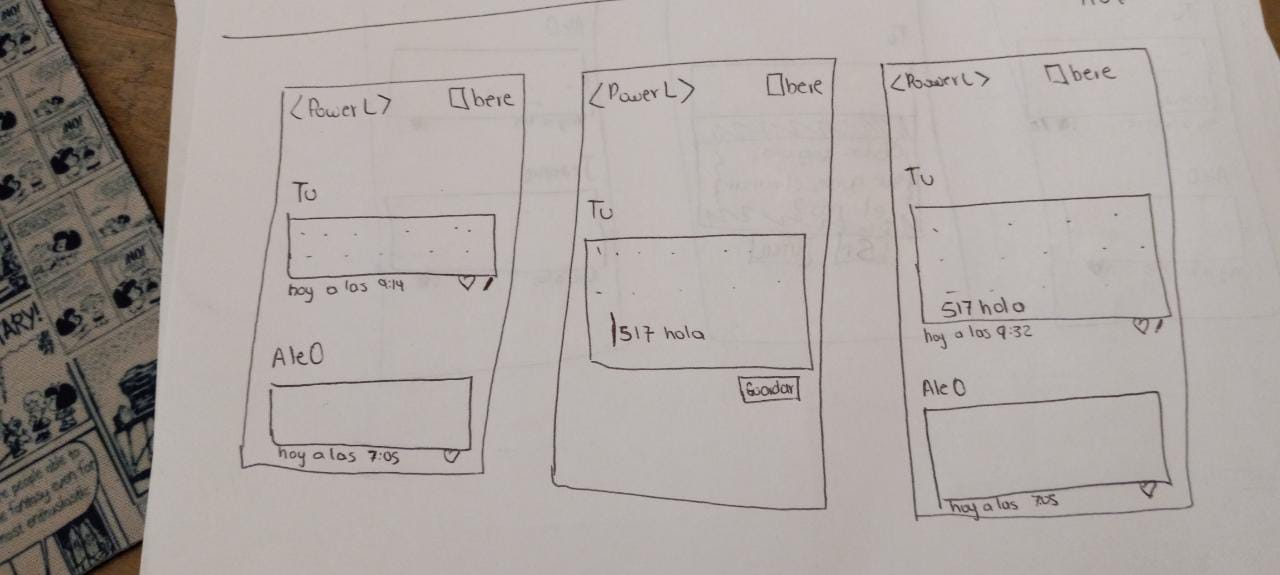 <PowerL> bere
Tu
hoy a las 9:14
AleO
hoy a las 7:05
<PowerL> bere
Tu
517 hola
Guardar
<PowerL> bere
Tu
517 hola
hoy a las 9:32
AleO
hoy a las 7:05
NO!
NO!
NO!
ARY!
people able to
fantasy even for
most enthusiastic